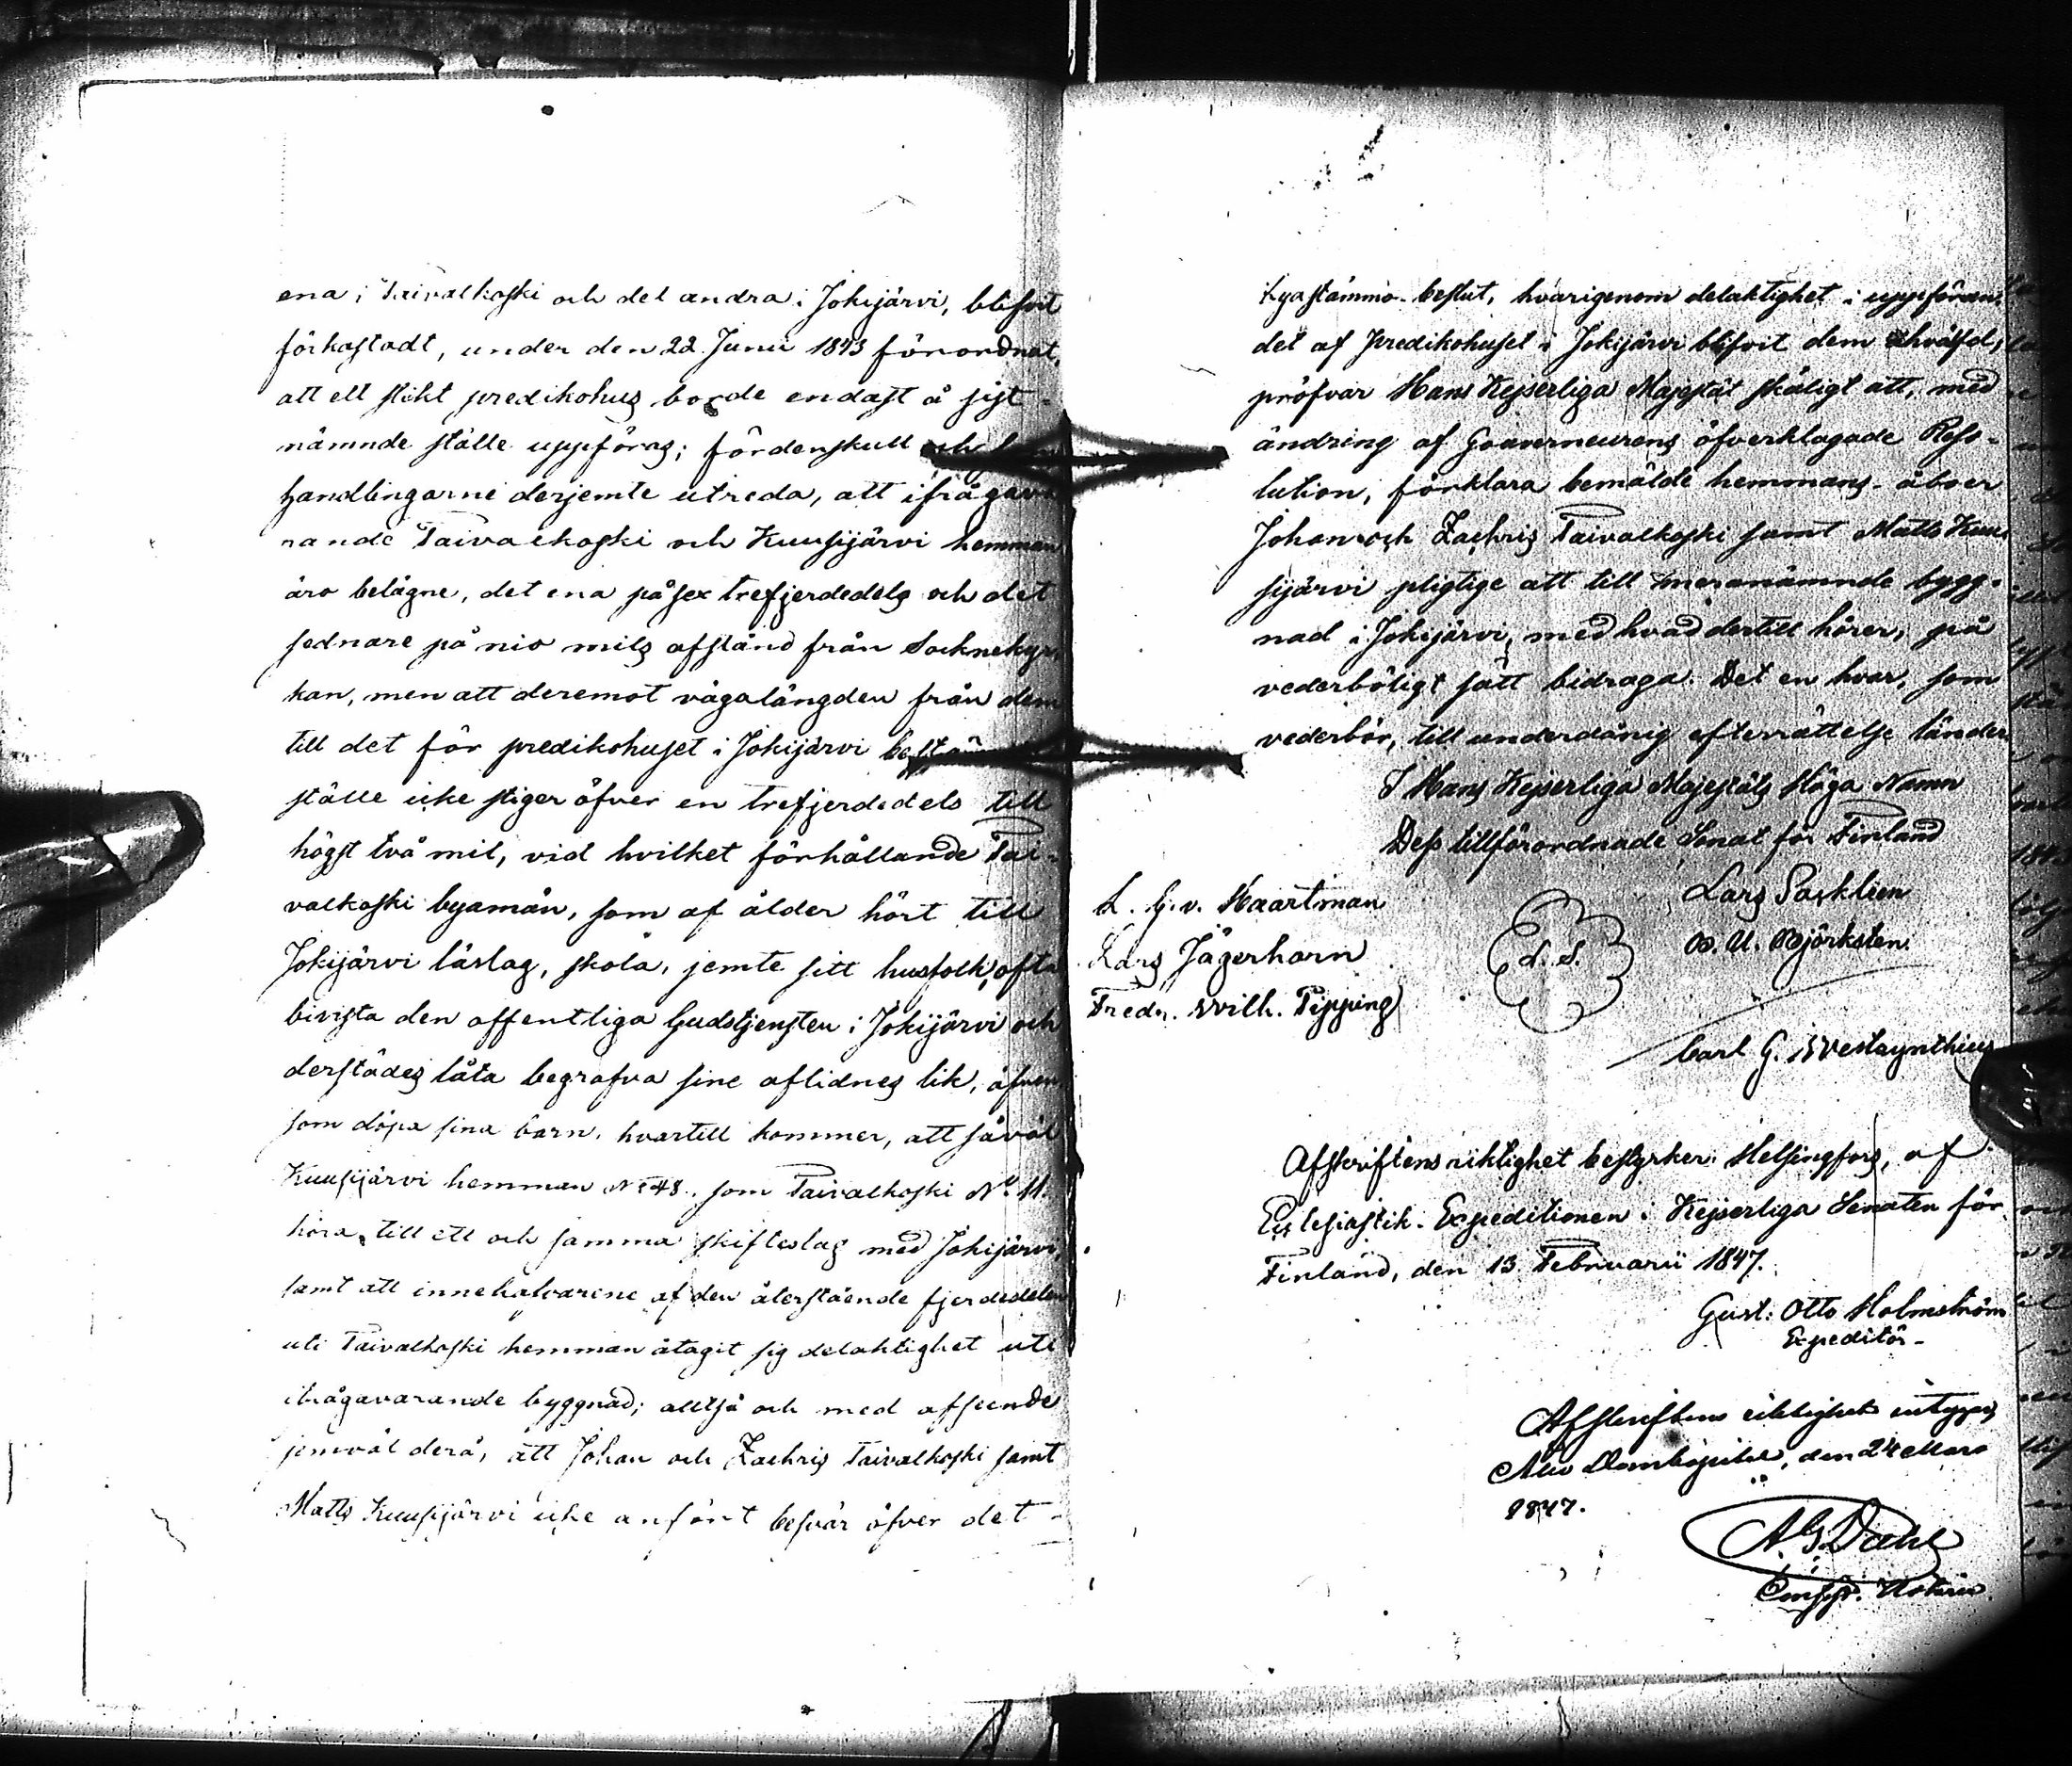 ena i Taivalkoski och det andra i Jokijärvi, blifvit
förkastadt, under den 22 Junii 1843 förordnat,
att ett slikt predikohus borde endast å sist-
nämnde ställe uppföras; fördenskull och
handlingarne derjemte utreda, att ifrågava-
rande Taivalkoski och Kuusijärvi hemman
äro belägne, det ena på sex trefjerdedels och det
sednare på nio mils afstånd från Sockneky­r-
kan, men att deremot vägalängden från dem
till det för predikohuset i Jokijärvi
ställe icke stiger öfver en trefjerdedels till
högst två mil, vid hvilket förhållande Tai-
valkoski byamän, som af ålder hört till
Jokijärvi läslag, skola, jemte sitt husfolk, ofta
bivista den offentliga Gudstjensten i Jokijärvi och
derstädes låta begrafva sine aflidnes lik, äfven
som döpa sina barn, hvartill kommer, att såväl
Kuusijärvi hemman No 48, som Taivalkoski No 11
höra till ett och samma skifteslag med Jokijärvi,
samt att innehafvarene af den återstående fjerdedelen
uti Taivalkoski hemman åtagit sig delaktighet uti
ifrågavarande byggnad; alltså och med afseende
jemväl derå, att Johan och Zachris Taivalkoski samt
Matts Kuusijärvi icke anfört besvär öfver det
Kyrkostämmo-beslut, hvarigenom delaktighet i uppföran-
det af Predikohuset i Jokijärvi blifvit dem
pröfvar Hans Kejserliga Majestät skäligt att, med
ändring af Gouverneurens öfverklagade Reso-
lution, förklara bemälde hemmans-åboer
Johan och Zachris Taivalkoski samt Matts Kuu-
sijärvi pligtige att till meranämnde bygg-
nad i Jokijärvi, med hvad dertill hörer, på
vederbörligt sätt bidraga. Det en hvar, som
vederbör, till underdånig efterrättelse länder.
I Hans Kejserliga Majestäts Höga Namn
Dess tillförordnade Senat för Finland
L. G. v. Haartman
Lars Sacklèen
Lars Jägerhorn
L. S.
B. U. Björksten
Fredr. Wilh. Pipping
Carl G.
Afskriftens riktighet bestyrker: Helsingfors, af
Ecklesiastik-Expeditionen i Kejserliga Senaten för
Finland, den 13 Februarii 1847.
Gust: Otto Holmström
Expeditör
Afskriftens riktighet intygar,
Åbo Domkapitel, den 24 Mars
1847.
A G Dahl
Notarie